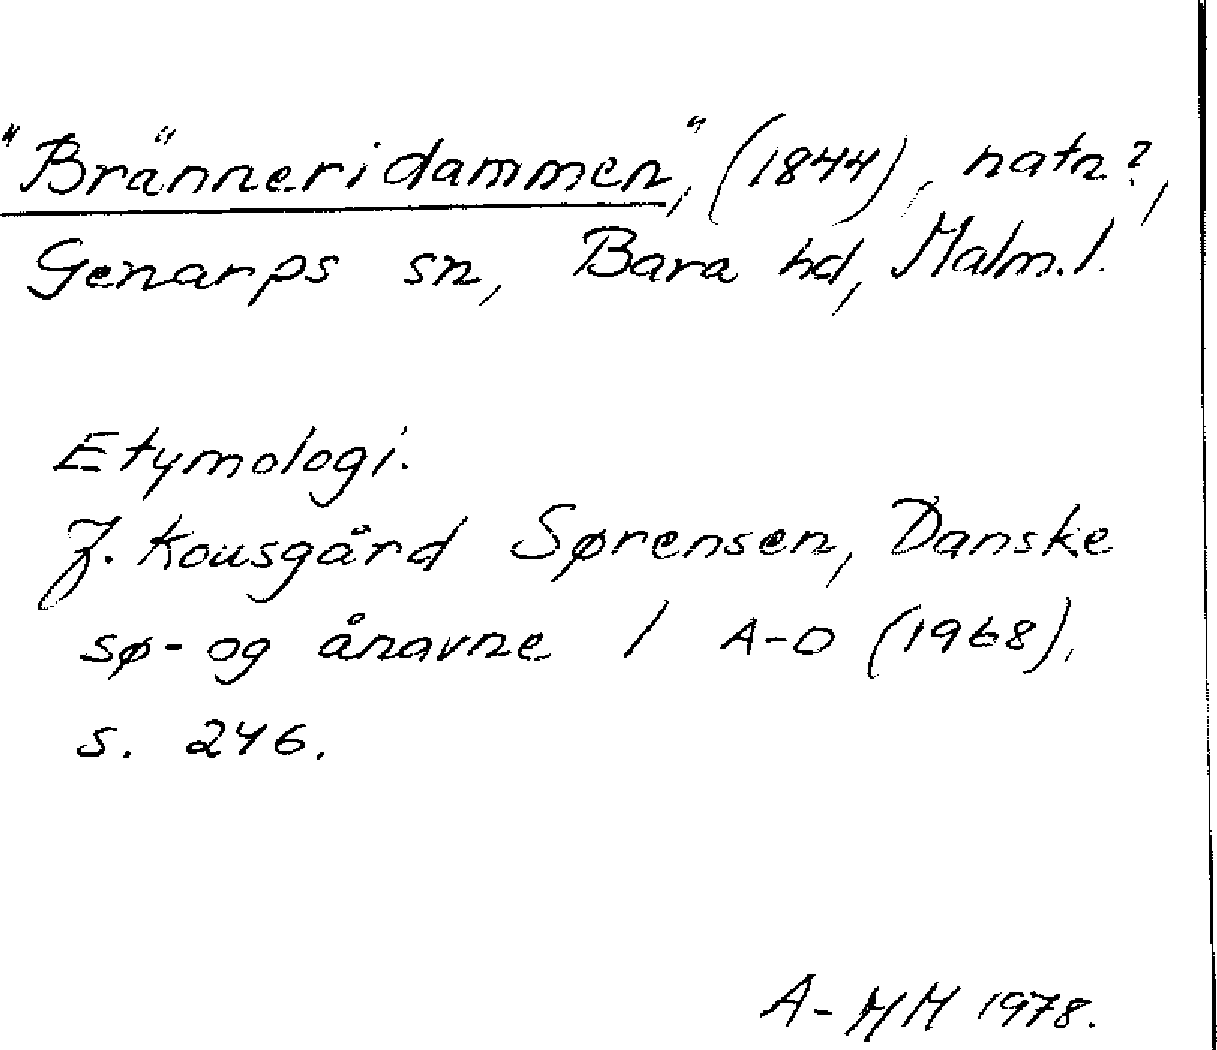 "Bränneridammen", (1844), natn?,
Genarps sn, Bara hd, Malm. l.
Etymologi.
J. Kousgård Sørensen, Danske
sø- og ånavne 1 A-D (1968),
s. 246.
A-MM 1978.